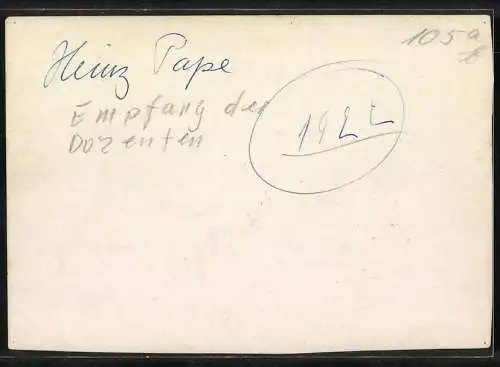 105a
Heinz Pape
Empfang der
Dozenten
1922